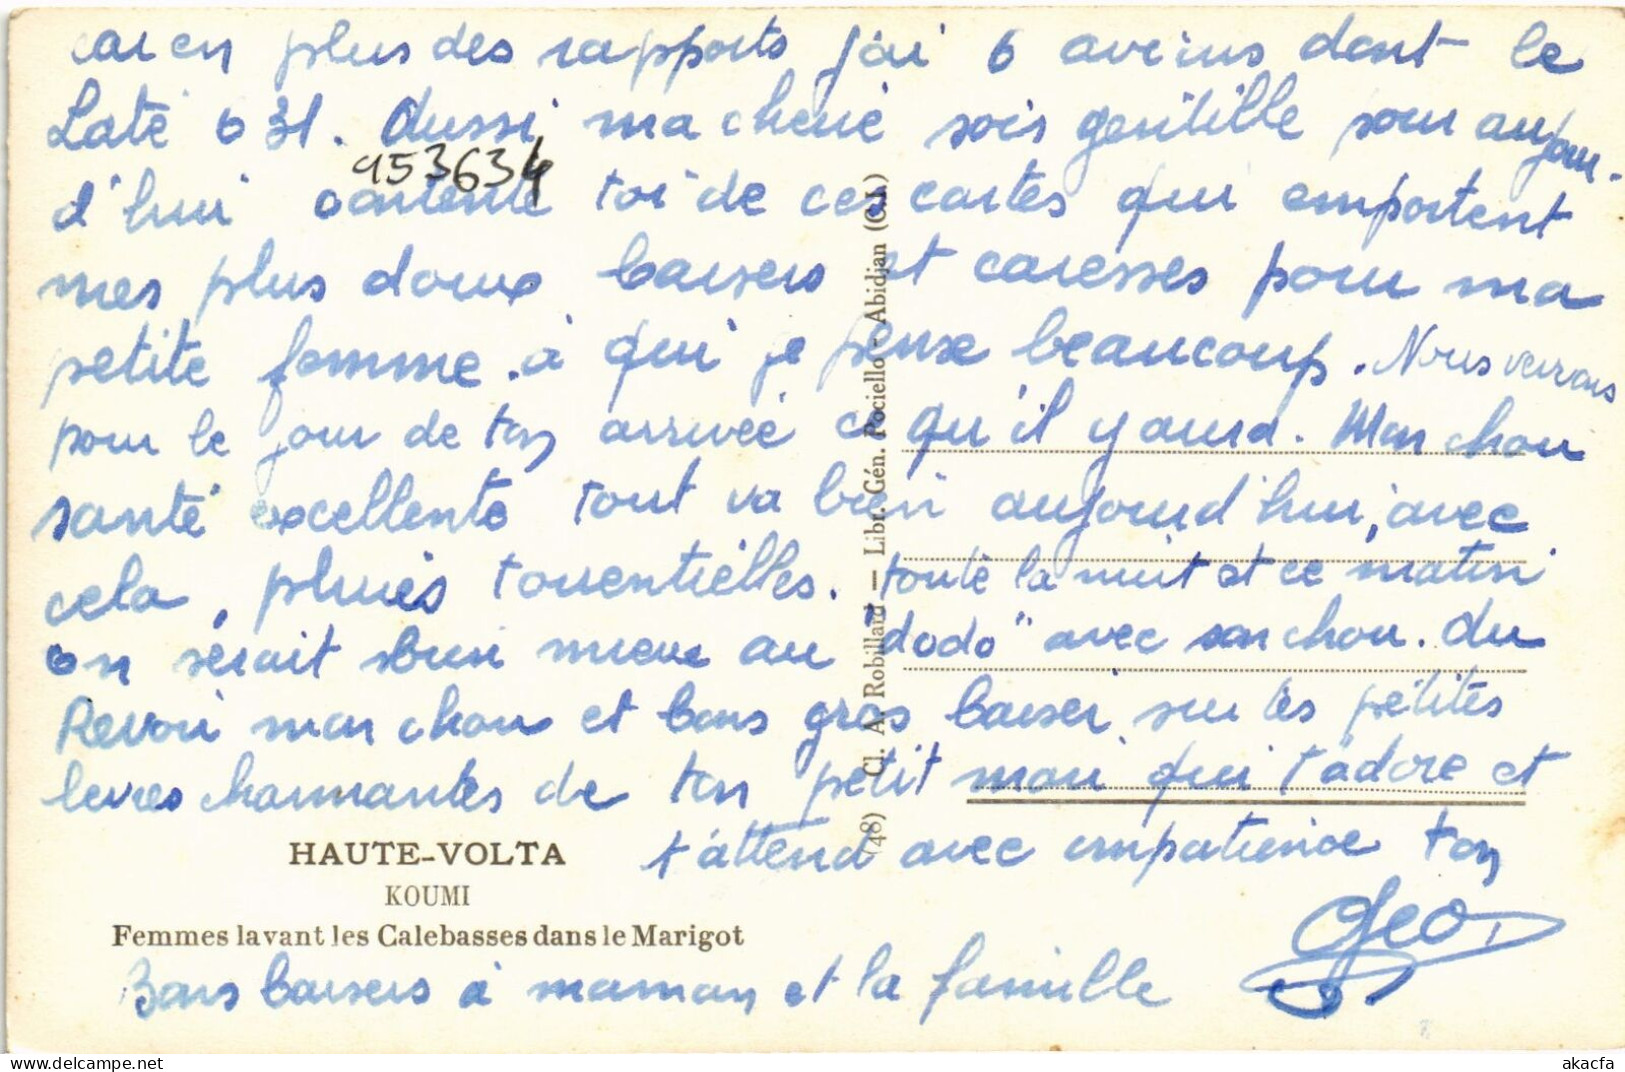 car en plus des rapports j'ai 6 avions dont le
Laté 631. Aussi ma cherie sois gentille pour aujour-
953634
d'hui contente toi de ces cartes qui emportent
mes plus doux baisers et caresses pour ma
petite femme à qui je pense beaucoup. Nous verrons
pour le jour de ton arrivée ce qu'il y aura. Mon chou
santé excellente tout va bien aujourd'hui, avec
cela, pluies torrentielles. toute la nuit et ce matin
on serait bien mieux au "dodo" avec son chou. Au
Revoir mon chou et bons gros baiser sur tes petites
levres charmantes de ton petit mari qui t'adore et
t'attend avec impatience ton
Geo
HAUTE-VOLTA
KOUMI
Femmes lavant les Calebasses dans le Marigot
Bons baisers à maman et la famille
(48) Cl. A. Robillard — Libr. Gén. Pociello - Abidjan (C.I.)
akacfa